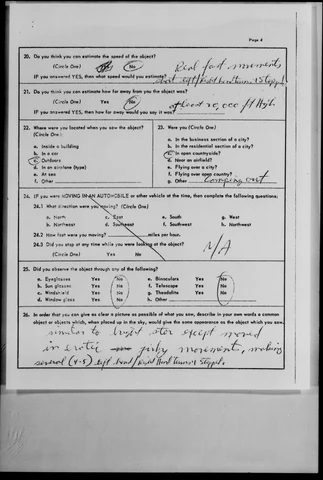 Page 4
20. Do you think you can estimate the speed of the object?
(Circle One) Yes No Real fast movements
IF you answered YES, then what speed would you estimate? left/right turns
21. Do you think you can estimate how far away from you the object was?
(Circle One) Yes No
IF you answered YES, then how far away would you say it was? at least 20,000 ft High
22. Where were you located when you saw the object? (Circle One):
a. Inside a building
b. In a car
c. Outdoors
d. In an airplane (type)
e. At sea
f. Other
23. Were you (Circle One)
a. In the business section of a city?
b. In the residential section of a city?
c. In open countryside?
d. Near an airfield?
e. Flying over a city?
f. Flying over open country?
g. Other camping out
24. IF you were MOVING IN AN AUTOMOBILE or other vehicle at the time, then complete the following questions:
24.1 What direction were you moving? (Circle One)
a. North c. East e. South g. West
b. Northeast d. Southeast f. Southwest h. Northwest
24.2 How fast were you moving? miles per hour.
24.3 Did you stop at any time while you were looking at the object?
(Circle One) Yes No N/A
25. Did you observe the object through any of the following?
a. Eyeglasses Yes No e. Binoculars Yes No
b. Sun glasses Yes No f. Telescope Yes No
c. Windshield Yes No g. Theodolite Yes No
d. Window glass Yes No h. Other
26. In order that you can give as clear a picture as possible of what you saw, describe in your own words a common
object or objects which, when placed up in the sky, would give the same appearance as the object which you saw.
similar to bright star except moved
in erotic jirky movement, making
several (4-5) left hand/Right Hand turns & stopped.